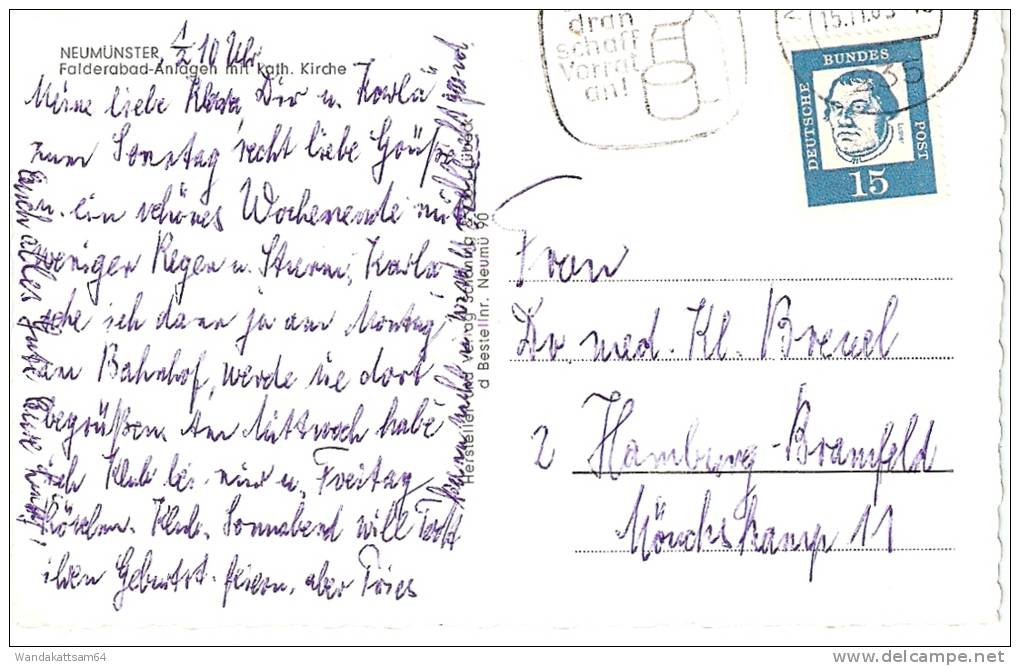 NEUMÜNSTER, ½ 10 Uhr
Falderabad-Anlagen mit kath. Kirche
Meine liebe Klara, Dir u. Karla
zum Sonntag recht liebe Grüße
u. ein schönes Wochenende mit
weniger Regen u. Sturm, Karla
sehe ich dann ja am Montag
am Bahnhof, werde sie dort
begrüßen. Am Mittwoch habe
ich Klub bei mir u. Freitag
Klub. Sonnabend will
ihren Geburtst. feiern, aber
Euch alles Gute Eure
Hersteller und Verlag Schöning & Lübeck
d Bestellnr. Neumü 90
dran
schaff
Vorrat
an!
15.11.63
DEUTSCHE
BUNDES
POST
Luther
15
Frau
Dr. med. Kl. Breuel
2 Hamburg-Bramfeld
Mönchskamp 11
Wandakattsam64
http://www.delcampe.net